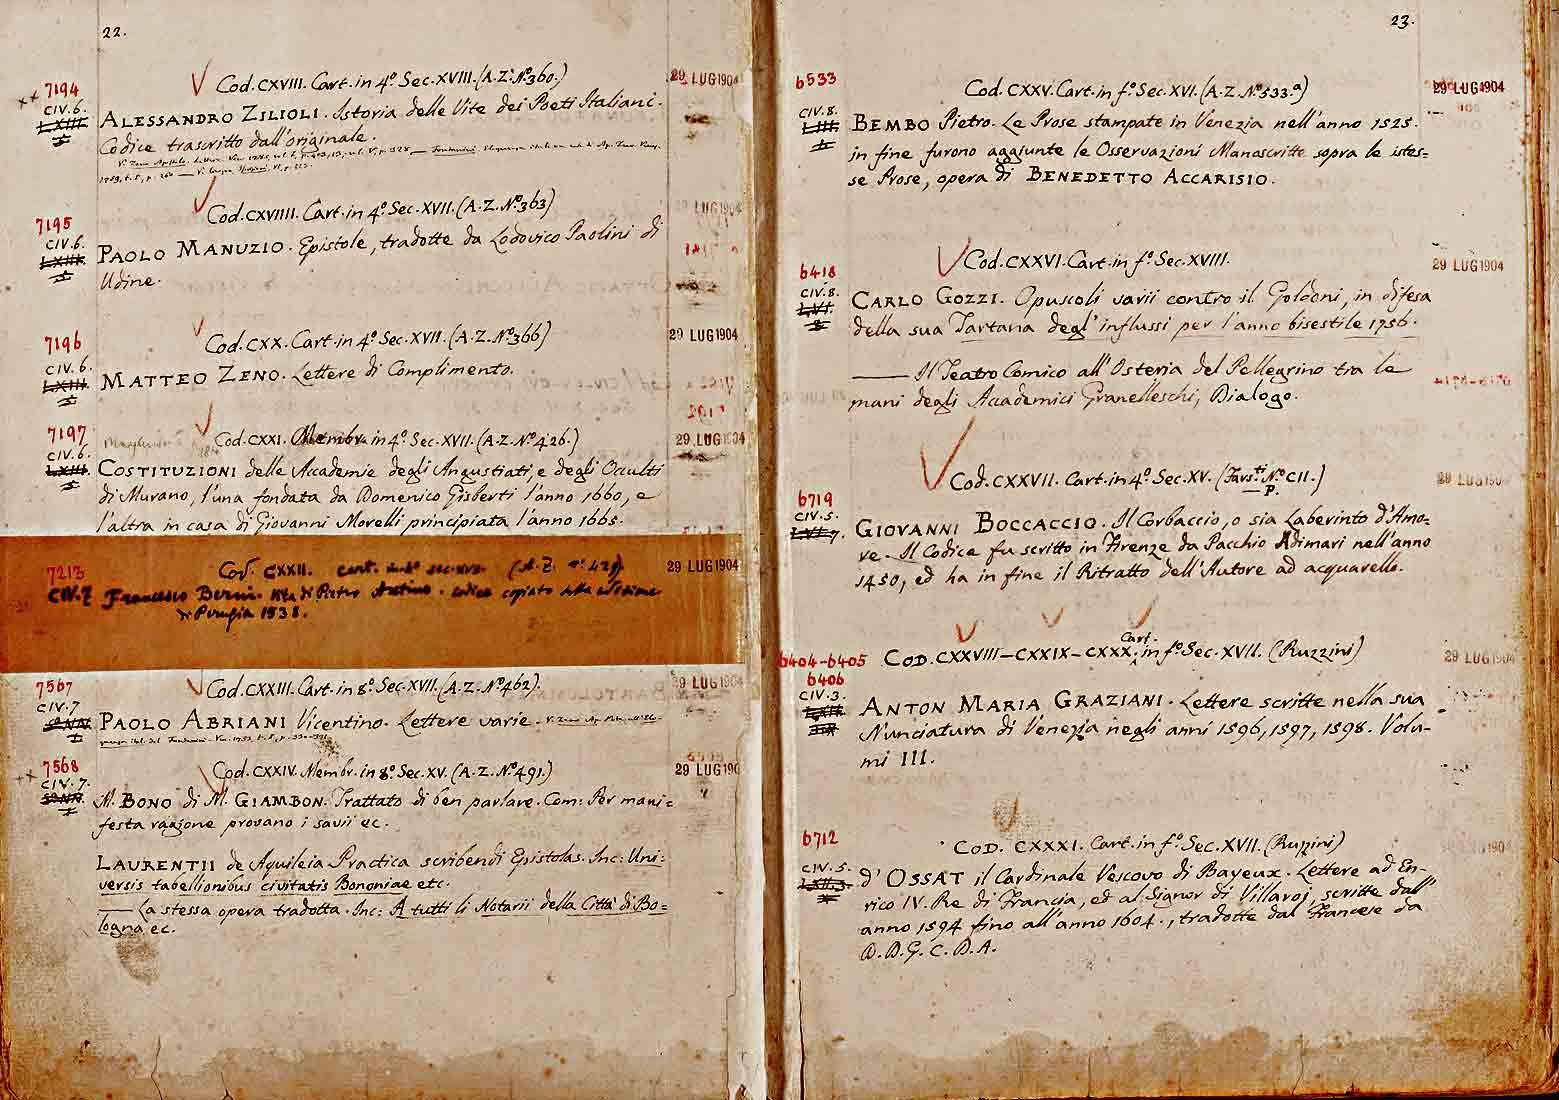 22.
7194 Cod. CXVIII. Cart. in 4º. Sec. XVIII. (A. Z. Nº. 360.) 29 LUG 1904
CIV. 6.
LXIII
ALESSANDRO ZILIOLI. Istoria delle Vite dei Poeti Italiani.
Codice trascritto dall'originale.
7195 Cod. CXVIIII. Cart. in 4º. Sec. XVII. (A. Z. Nº. 363) LUG 1904
CIV. 6.
LXIII
PAOLO MANUZIO. Epistole, tradotte da Lodovico Paolini di
Udine.
7196 Cod. CXX. Cart. in 4º. Sec. XVII. (A. Z. Nº. 366) 29 LUG 1904
CIV. 6.
LXIII
MATTEO ZENO. Lettere di Complimento.
7197 Cod. CXXI. Membr. in 4º. Sec. XVII. (A. Z. Nº. 426.) 29 LUG 1904
CIV. 6.
LXIII
COSTITUZIONI delle Accademie degli Angustiati, e degli Occulti
di Murano, l'una fondata da Domenico Gisberti l'anno 1660, e
l'altra in casa di Giovanni Morelli principiata l'anno 1665.
7213 Cod. CXXII. cart. sec. XVI. (A. Z. nº. 429) 29 LUG 1904
CIV. 7 Francesco Berni. Vita di Pietro Aretino. codice copiato dalla edizione
di Perugia 1538.
7567 Cod. CXXIII. Cart. in 8º. Sec. XVII. (A. Z. Nº. 462). 29 LUG 1904
CIV. 7
PAOLO ABRIANI Vicentino. Lettere varie.
7568 Cod. CXXIV. Membr. in 8º. Sec. XV. (A. Z. Nº. 491.) 29 LUG 190
CIV. 7.
M. BONO di M. GIAMBON. Trattato di ben parlare. Com: Per mani=
festa ragione provano i savii ec.
LAURENTII de Aquileia Practica scribendi Epistolas. Inc: Uni=
versis tabellionibus civitatis Bononiae etc.
— La stessa opera tradotta. Inc: A tutti li Notarii della Città di Bo=
logna ec.
23.
6533 Cod. CXXV. Cart. in fº. Sec. XVI. (A. Z. Nº. 533.ª) 29 LUG 1904
CIV. 8.
BEMBO Pietro. Le Prose stampate in Venezia nell'anno 1525.
in fine furono aggiunte le Osservazioni Manoscritte sopra le istes=
se Prose, opera di BENEDETTO ACCARISIO.
6418 Cod. CXXVI. Cart. in fº. Sec. XVIII. 29 LUG 1904
CIV. 8.
CARLO GOZZI. Opuscoli varii contro il Goldoni, in difesa
della sua Tartana degl'influssi per l'anno bisestile 1756.
— Il Teatro Comico all'Osteria del Pellegrino tra le
mani degli Accademici Granelleschi, Dialogo.
6719 Cod. CXXVII. Cart. in 4º. Sec. XV. (Farsti. Nº. CII.) 29 LUG 190
CIV. 5.
GIOVANNI BOCCACCIO. Il Corbaccio, o sia Laberinto d'Amo=
re. Il Codice fu scritto in Firenze da Pacchio Adimari nell'anno
1450, ed ha in fine il Ritratto dell'Autore ad acquarello.
6404-6405 COD. CXXVIII — CXXIX — CXXX. Cart. in fº. Sec. XVII. (Ruzzini) 29 LUG 1904
6406
CIV. 3.
ANTON MARIA GRAZIANI. Lettere scritte nella sua
Nunciatura di Venezia negli anni 1596, 1597, 1598. Volu-
mi III.
6712 COD. CXXXI. Cart. in fº. Sec. XVII. (Ruzzini) 1904
CIV. 5.
d'OSSAT il Cardinale Vescovo di Bayeux. Lettere ad En-
rico IV. Re di Francia, ed al Signor di Villaroj, scritte dall'
anno 1594 fino all'anno 1604., tradotte dal Francese da
D. D. G. C. D. A.